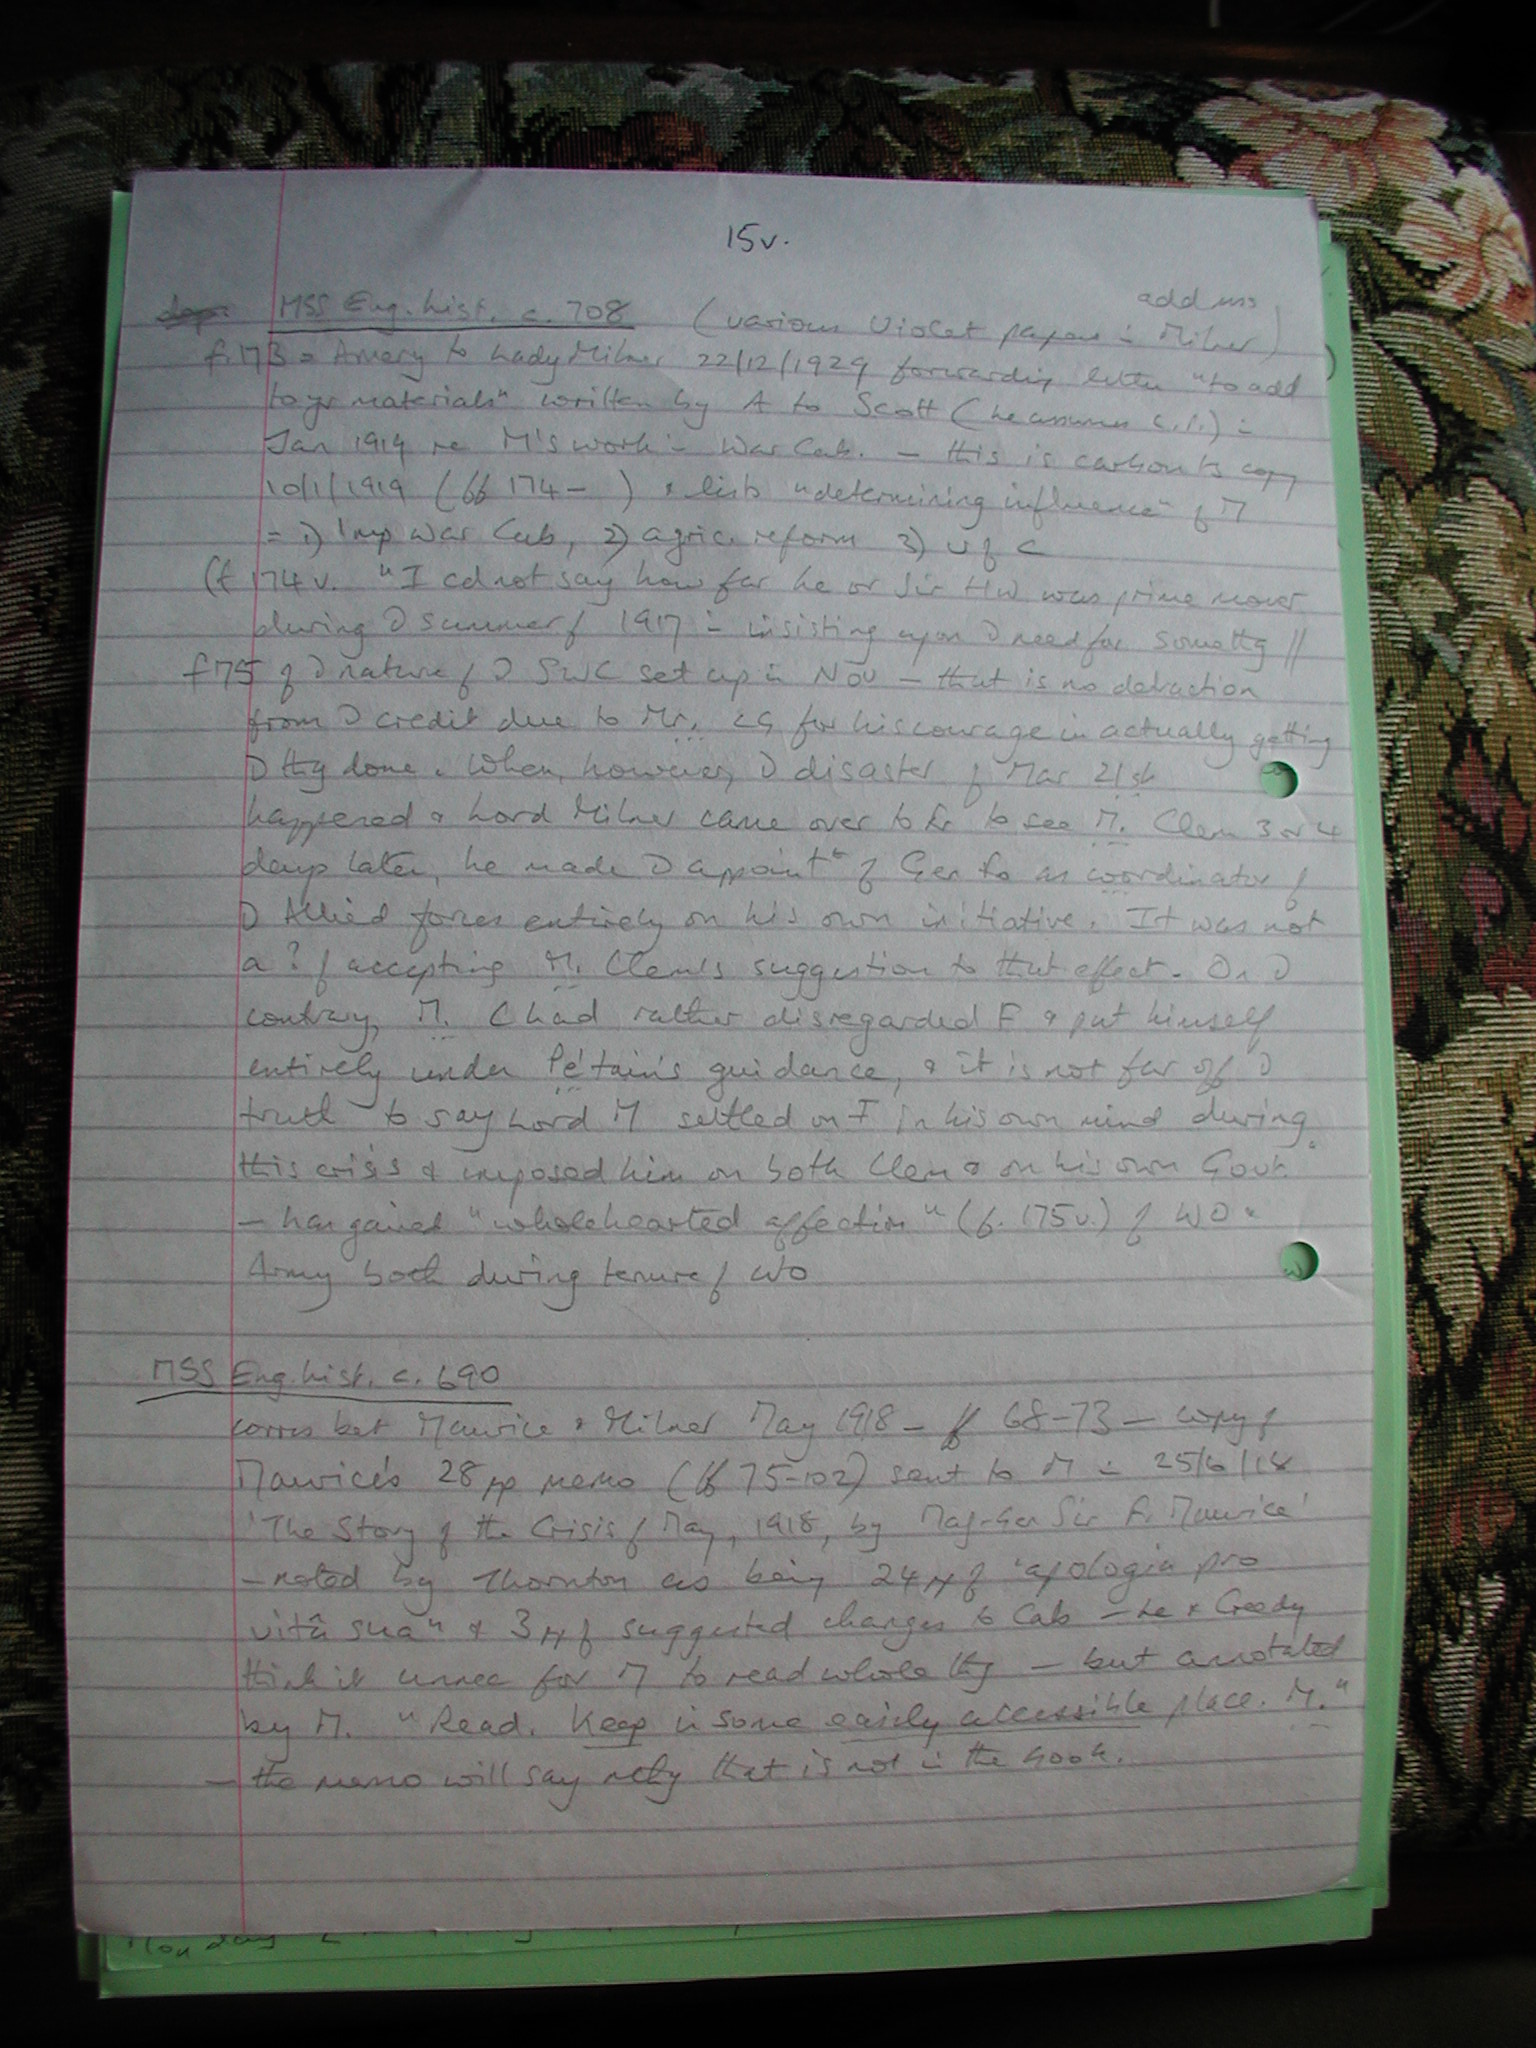 15v.
add mss
dep. MSS Eng. hist. c. 708 (various Violet papers - Milner)
f.173 = Amery to Lady Milner 22/12/1929 forwarding letter "to add
to yr materials" written by A to Scott (he assumes C.P.) -
Jan 1919 re M's work - War Cab. - this is carbon ts copy
10/1/1919 (ff 174- ) & lists "determining influence" of M
= 1) Imp War Cab, 2) agric. reform 3) U of C
(f 174v. "I cd not say how far he or Sir HW was prime mover
during D summer of 1917 - insisting upon D need for somethg //
f175 of D nature of D SWC set up in Nov - that is no detraction
from D credit due to Mr. LG for his courage in actually getting
D thg done. When, however, D disaster of Mar 21st
happened & Lord Milner came over to Fr to see M. Clem 3 or 4
days later, he made D appointt of Gen Fo as coordinator of
D Allied forces entirely on his own initiative. It was not
a ? of accepting M. Clem's suggestion to that effect. On D
contrary, M. C had rather disregarded F & put himself
entirely under Pétain's guidance, & it is not far off D
truth to say Lord M settled on F in his own mind during
this crisis & imposed him on both Clem & on his own Govt."
- has gained "wholehearted affection" (f. 175v.) of WO &
Army both during tenure of WO
MSS Eng. hist. c. 690
corres bet Maurice & Milner May 1918 - ff 68-73 - copy of
Maurice's 28pp memo (ff 75-102) sent to M - 25/6/18
'The Story of the Crisis of May, 1918, by Maj-Gen Sir F. Maurice'
- noted by Thornton as being 24pp of "apologia pro
vitâ sua" & 3pp of suggested changes to Cab - he & Creedy
think it unnec for M to read whole thg - but annotated
by M. "Read. Keep in some easily accessible place. M."
- the memo will say nthg that is not in the book.